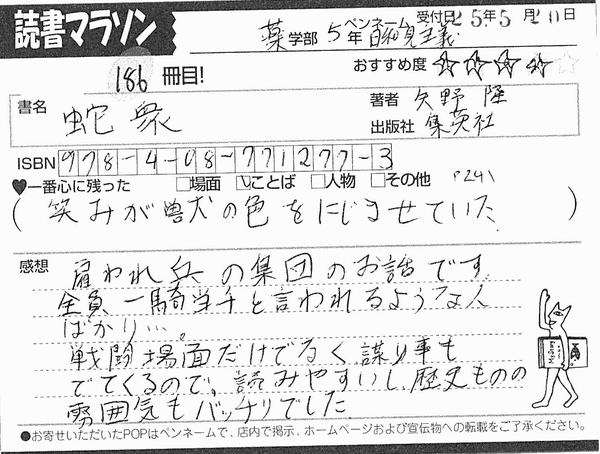 読書マラソン
薬学部 5年 ペンネーム 日和見主義 受付日25年5月20日
おすすめ度 ☆☆☆☆☆
186 冊目!
書名 蛇衆
著者 矢野隆
出版社 集英社
ISBN 978-4-08-771277-3
♥一番心に残った □場面 ☑ことば □人物 □その他 P241
(笑みが獣の色をにじませていた)
感想 雇われ兵の集団のお話です
全員一騎当千と言われるような人
ばかり…。
戦闘場面だけでなく謀り事も
でてくるので、読みやすいし、歴史ものの
雰囲気もバッチリでした
●お寄せいただいたPOPはペンネームで、店内で掲示、ホームページおよび宣伝物への転載をご了承ください。